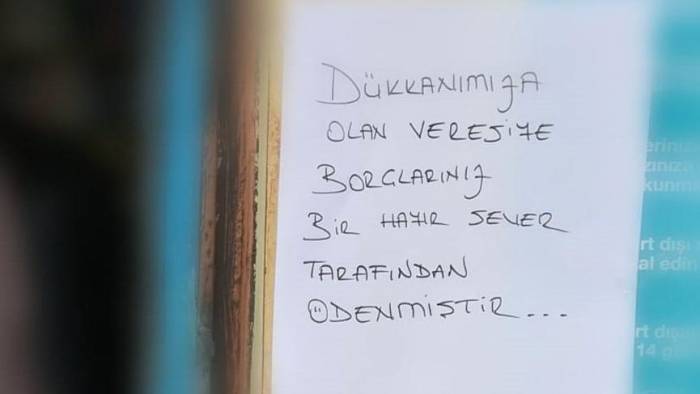 DÜKKANIMIZA
OLAN VERESİYE
BORÇLARINIZ
BİR HAYIR SEVER
TARAFINDAN
ÖDENMİŞTİR...
rt dışı
al edin
14 g